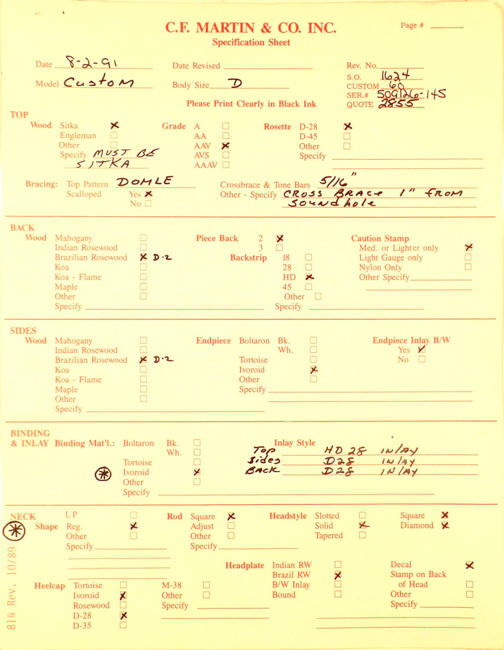 C.F. MARTIN & CO. INC. Page # ____
Specification Sheet
Date 8-2-91 Date Revised ____ Rev. No. ____
Model Custom Body Size D S.O. 1624
CUSTOM 60
SER.# 509126-145
Please Print Clearly in Black Ink QUOTE 2855
TOP
Wood Sitka ✗ Grade A □ Rosette D-28 ✗
Engleman □ AA □ D-45 □
Other □ AAV ✗ Other □
Specify MUST BE AVS □ Specify ____
SITKA AAAV □
Bracing: Top Pattern DOMLE Crossbrace & Tone Bars 5/16"
Scalloped Yes ✗ Other - Specify CROSS BRACE 1" FROM
No □ Soundhole
BACK
Wood Mahogany □ Piece Back 2 ✗ Caution Stamp
Indian Rosewood □ 3 □ Med. or Lighter only ✗
Brazilian Rosewood ✗ D-2 Backstrip 18 □ Light Gauge only □
Koa □ 28 □ Nylon Only □
Koa - Flame □ HD ✗ Other Specify ____
Maple □ 45 □
Other □ Other □
Specify ____ Specify ____
SIDES
Wood Mahogany □ Endpiece Boltaron Bk. □ Endpiece Inlay B/W
Indian Rosewood □ Wh. □ Yes ✗
Brazilian Rosewood ✗ D-2 Tortoise □ No □
Koa □ Ivoroid ✗
Koa - Flame □ Other □
Maple □ Specify ____
Other □
Specify ____
BINDING
& INLAY Binding Mat'l.: Boltaron Bk. □ Inlay Style
Wh. □ Top HD 28 INlAy
Tortoise □ Sides D28 INlAy
* Ivoroid ✗ BACK D28 INlAy
Other □
Specify ____
NECK LP □ Rod Square ✗ Headstyle Slotted □ Square ✗
* Shape Reg. ✗ Adjust □ Solid ✗ Diamond ✗
Other □ Other □ Tapered □
Specify ____ Specify ____
Headplate Indian RW □ Decal ✗
Brazil RW ✗ Stamp on Back
Heelcap Tortoise □ M-38 □ B/W Inlay □ of Head □
Ivoroid ✗ Other □ Bound □ Other □
Rosewood □ Specify ____ Specify ____
D-28 ✗
D-35 □
814 Rev. 10/89